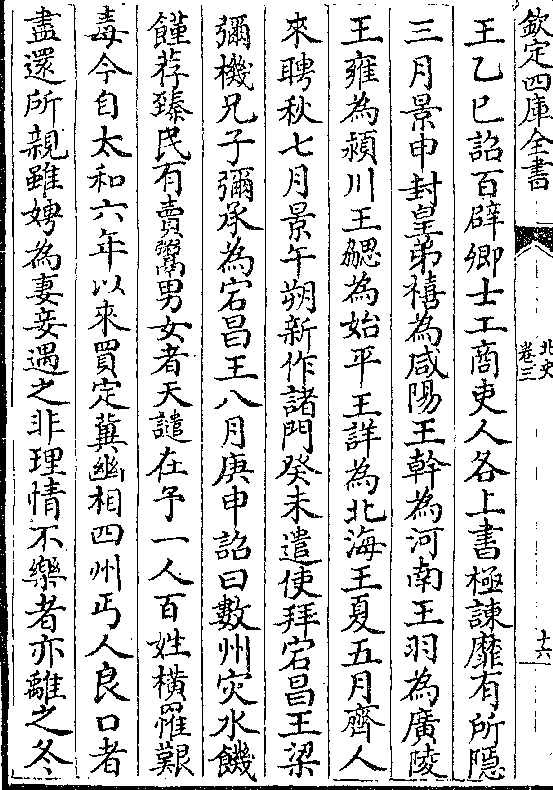 欽定四庫全書
北史
卷三
十六
王乙巳詔百辟卿士工商吏人各上書極諫靡有所隱
三月景申封皇弟禧為咸陽王幹為河南王羽為廣陵
王雍為潁川王勰為始平王詳為北海王夏五月齊人
來聘秋七月景午朔新作諸門癸未遣使拜宕昌王梁
彌機兄子彌承為宕昌王八月庚申詔曰數州灾水饑
饉荐臻民有賣鬻男女者天譴在予一人百姓橫罹艱
毒今自太和六年以來買定冀幽相四州丐人良口者
盡還所親雖娉為妻妾遇之非理情不樂者亦離之冬